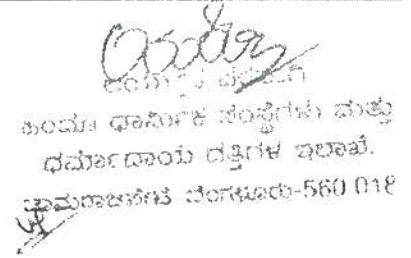 ಹಿಂದೂ ಧಾರ್ಮಿಕ ಸಂಸ್ಥೆಗಳು ಮತ್ತು
ಧರ್ಮಾದಾಯ ದತ್ತಿಗಳ ಇಲಾಖೆ.
ಚಾಮರಾಜಪೇಟೆ ಬೆಂಗಳೂರು-560 018